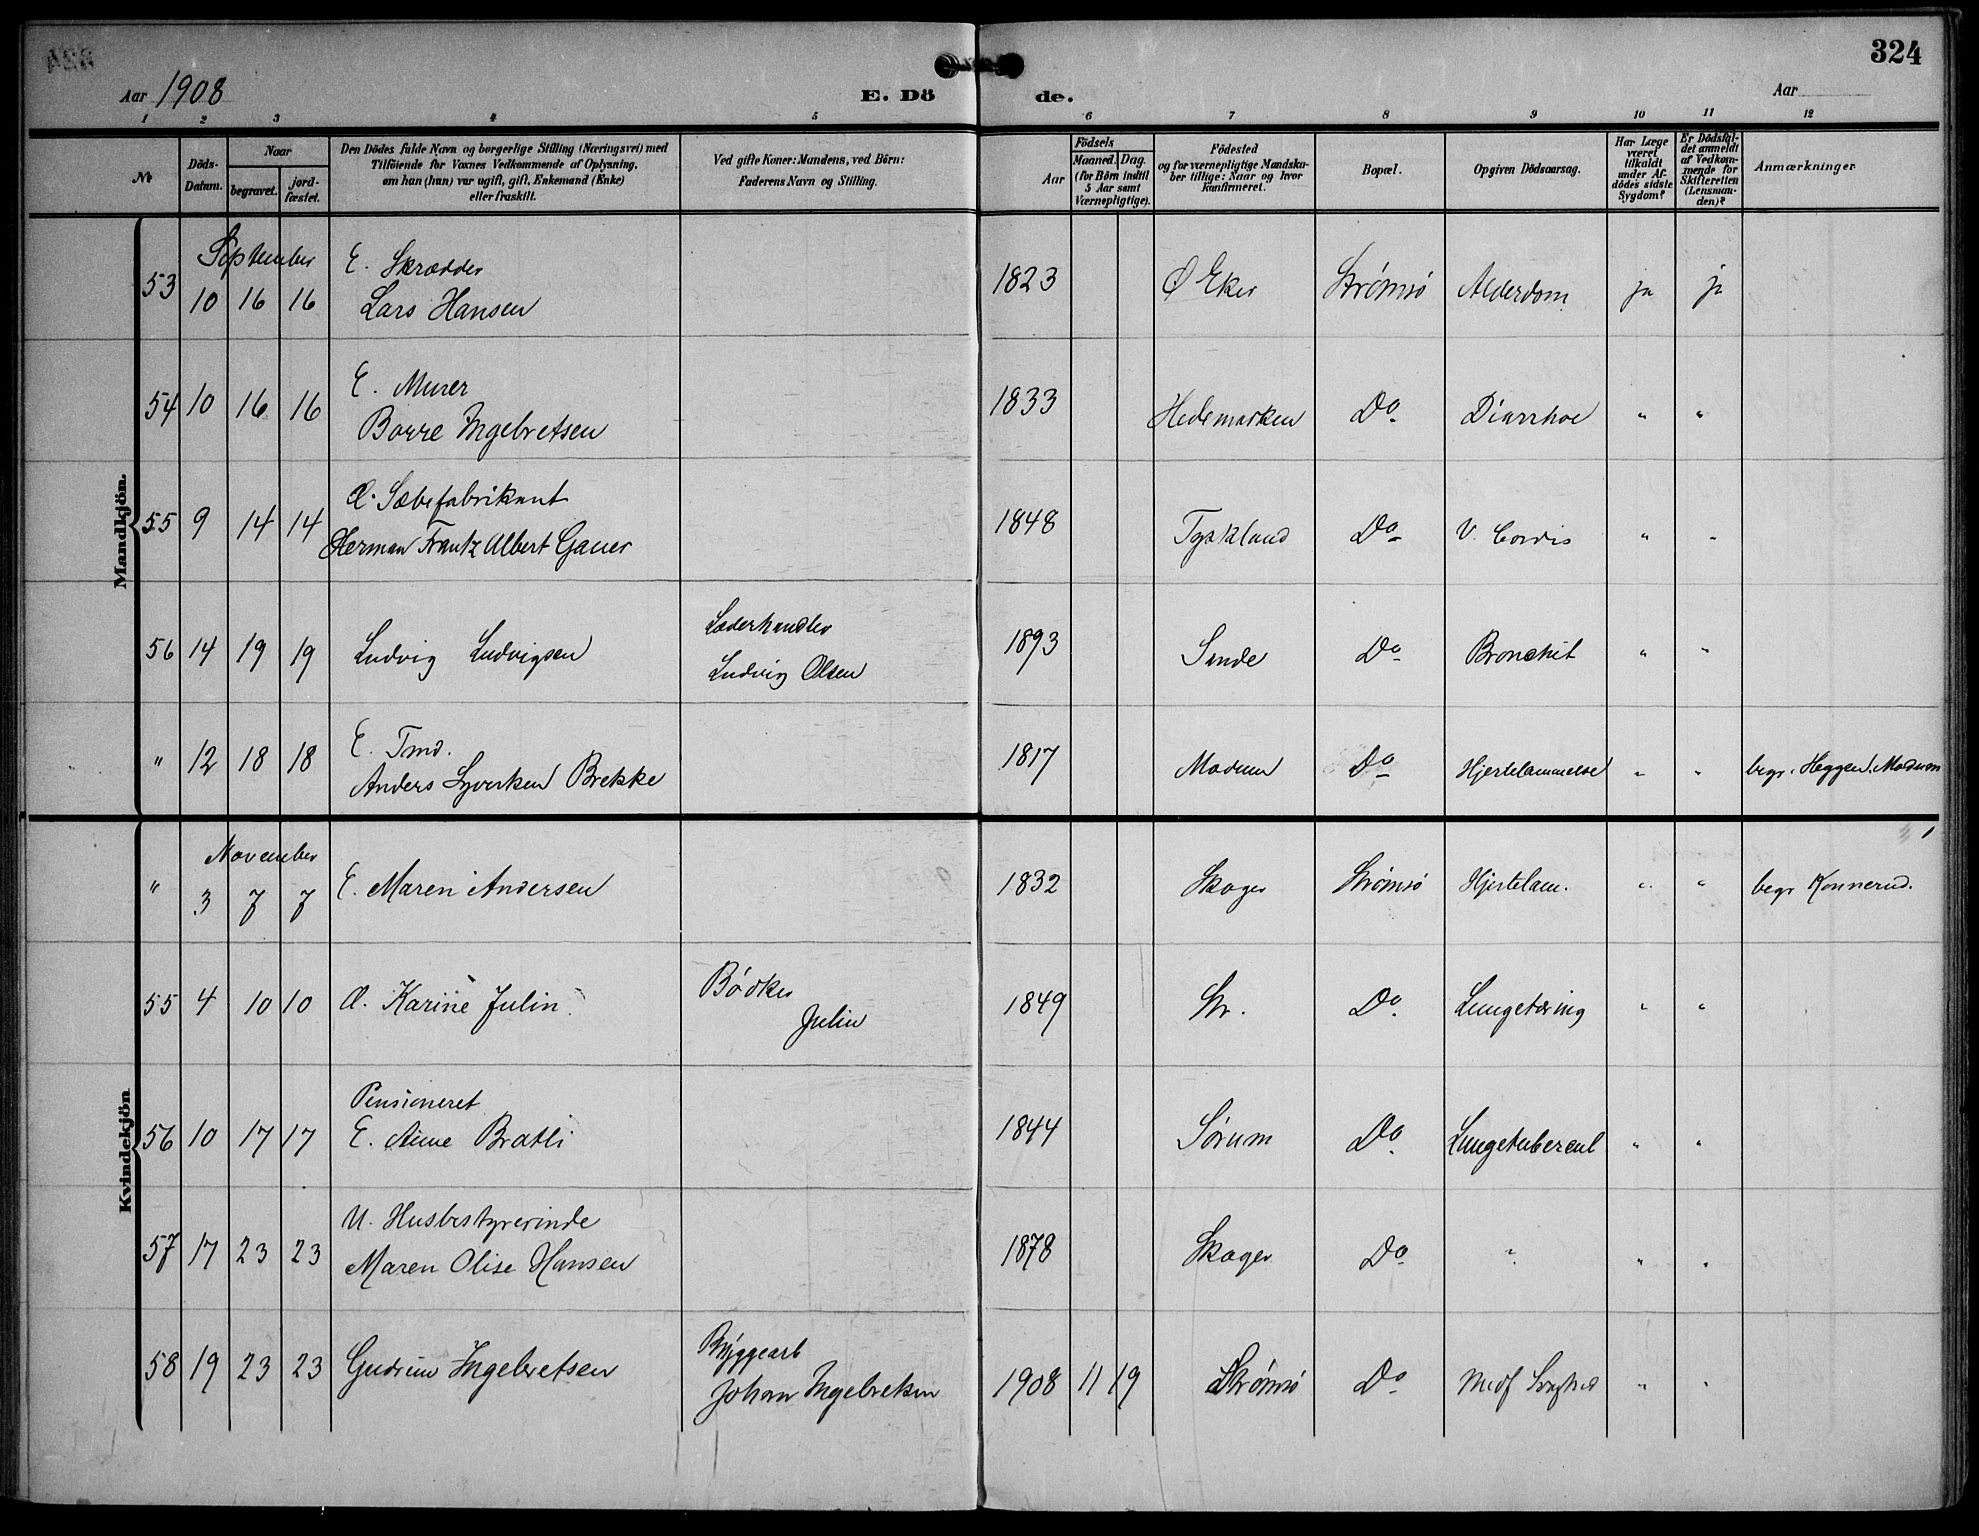 324
Aar 1908
E. Dö
de.
Aar
1 2 3 4 5 6 7 8 9 10 11 12
No
Döds-
Datum.
Naar
begravet.
jord-
fæstet.
Den Dödes fulde Navn og borgerlige Stilling (Næringsvei) med
Tilföiende for Voxnes Vedkommende af Oplysning,
om han (hun) var ugift, gift, Enkemand (Enke)
eller fraskilt.
Ved gifte Koner: Mandens, ved Börn:
Faderens Navn og Stilling.
Födsels
Aar
Maaned. Dag.
(for Börn indtil
5 Aar samt
Værnepligtige).
Födested
og for værnepligtige Mandska-
ber tillige: Naar og hvor
konfirmeret.
Bopæl.
Opgiven Dödsaarsag.
Har Læge
været
tilkaldt
under Af-
dödes sidste
Sygdom?
Er Dödsfal-
det anmeldt
af Vedkom-
mende for
Skifteretten
(Lensman-
den)?
Anmærkninger
Mandkjön.
September
53 10 16 16 E. Skrædder
Lars Hansen 1823 Ø Eker Strømsö Alderdom ja ja
54 10 16 16 E. Murer
Borre Ingebretsen 1833 Hedemarken Do Diarrhoe " "
55 9 14 14 G. Sæbefabrikant
Herman Frantz Albert Gauer 1848 Tyskland Do V. Cordis " "
56 14 19 19 Ludvig Ludvigsen Læderhandler
Ludvig Olsen 1893 Sande Do Bronchit " "
" 12 18 18 E. Tmd.
Anders Syverksen Brekke 1817 Modum Do Hjertelammelse " " begr. Heggen, Modum
Kvindekjön
November
" 3 7 7 E. Maren Andersen 1832 Skoger Strømsö Hjertelam. " " begr Konnerud.
55 4 10 10 G. Karine Julin Bödker
Julin 1849 Str. Do Lungetæring " "
56 10 17 17 Pensioneret
E. Anne Bratli 1844 Sörum Do Lungetubercul " "
57 17 23 23 U. Husbestyrerinde
Maren Olise Hansen 1878 Skoger Do " " "
58 19 23 23 Gudrun Ingebretsen Byggearb
Johan Ingebretsen 1908 11 19 Strømsö Do Medf Svaghed " "